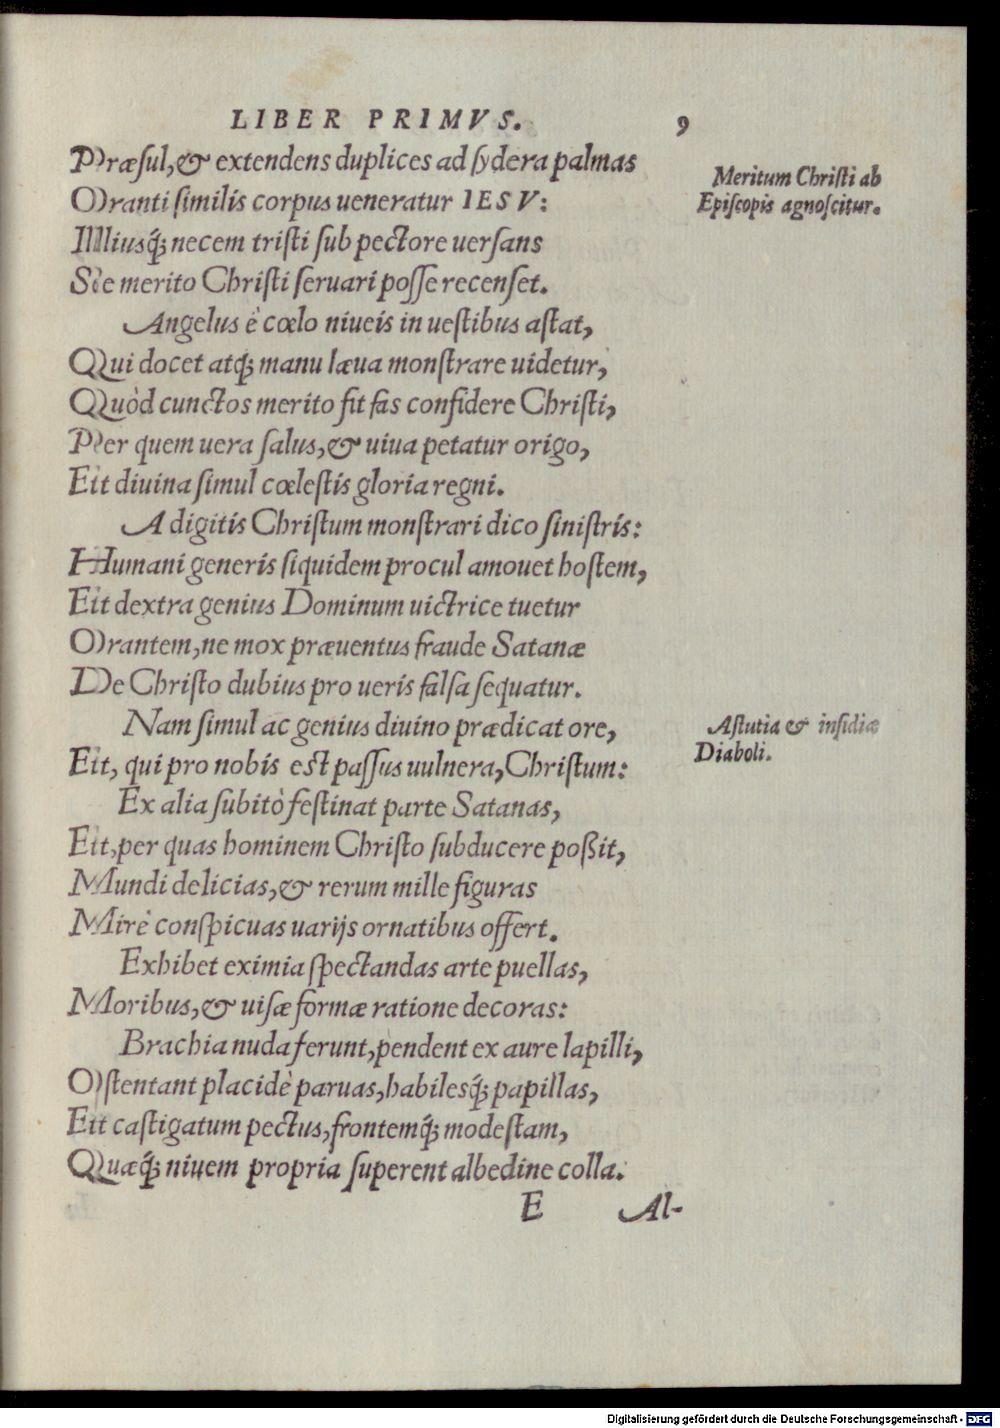 LIBER PRIMVS. 9
Præſul, & extendens duplices ad ſydera palmas
Oranti ſimilis corpus ueneratur IESV:
Meritum Chriſti ab
Epiſcopis agnoſcitur.
Illiusq́; necem triſti ſub pectore uerſans
Se merito Chriſti ſeruari poſſe recenſet.
Angelus è cœlo niueis in ueſtibus aſtat,
Qui docet atq; manu læua monſtrare uidetur,
Quòd cunctos merito ſit fas confidere Chriſti,
Per quem uera ſalus, & uiua petatur origo,
Et diuina ſimul cœleſtis gloria regni.
A digitis Chriſtum monſtrari dico ſiniſtris:
Humani generis ſiquidem procul amouet hoſtem,
Et dextra genius Dominum uictrice tuetur
Orantem, ne mox præuentus fraude Satanæ
De Chriſto dubius pro ueris falſa ſequatur.
Nam ſimul ac genius diuino prædicat ore,
Et, qui pro nobis eſt paſſus uulnera, Chriſtum:
Aſtutia & inſidiæ
Diaboli.
Ex alia ſubitò feſtinat parte Satanas,
Et, per quas hominem Chriſto ſubducere poßit,
Mundi delicias, & rerum mille figuras
Mirè conſpicuas uarijs ornatibus offert.
Exhibet eximia ſpectandas arte puellas,
Moribus, & uiſæ formæ ratione decoras:
Brachia nuda ferunt, pendent ex aure lapilli,
Oſtentant placidè paruas, habilesq́; papillas,
Et caſtigatum pectus, frontemq́; modeſtam,
Quæq́; niuem propria ſuperent albedine colla.
E Al-
Digitalisierung gefördert durch die Deutsche Forschungsgemeinschaft - DFG